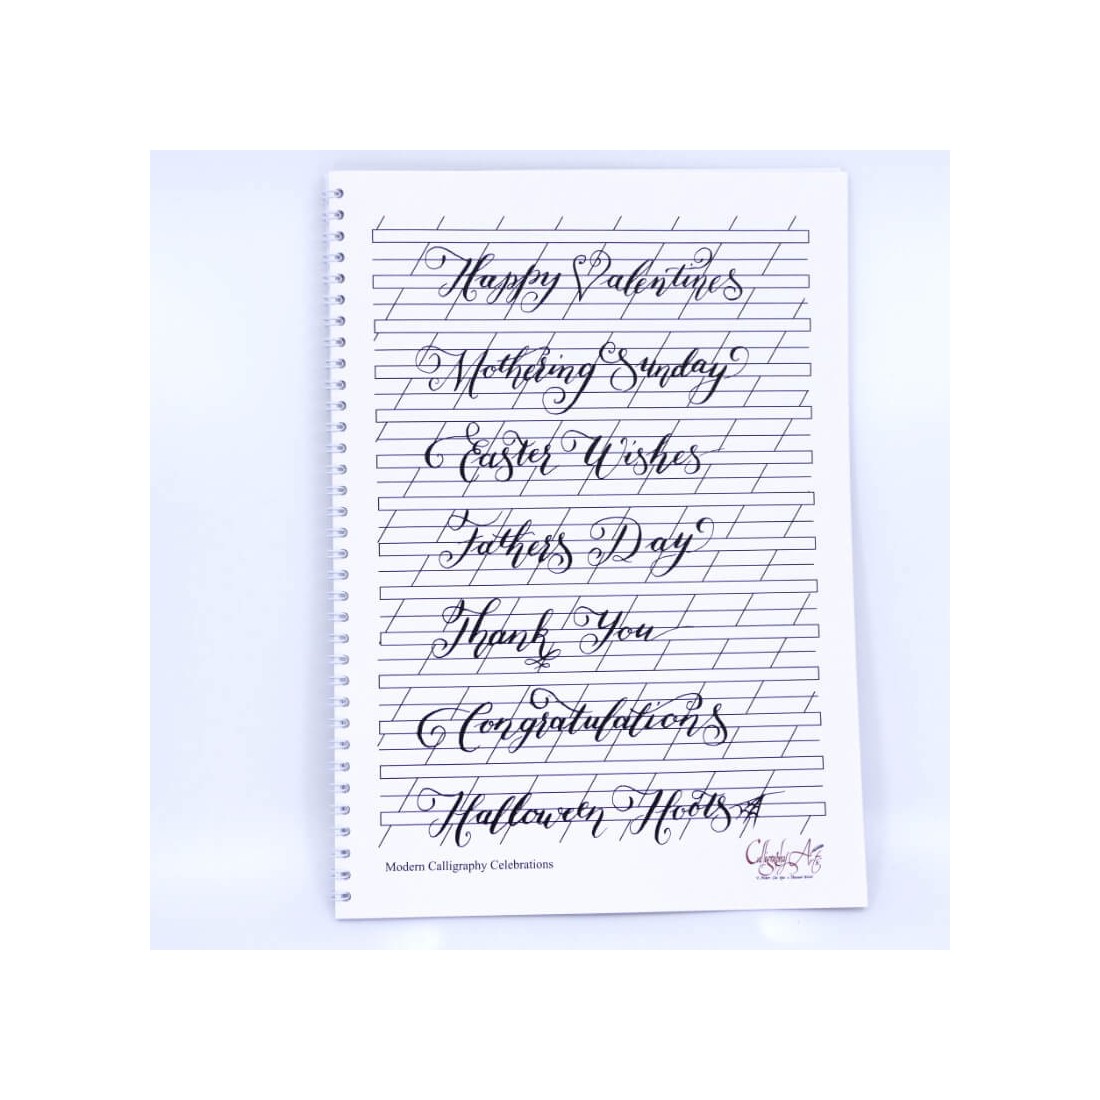 Happy Valentines
Mothering Sunday
Easter Wishes
Fathers Day
Thank You
Congratulations
Halloween Hoots
Modern Calligraphy Celebrations
Calligraphy Arts